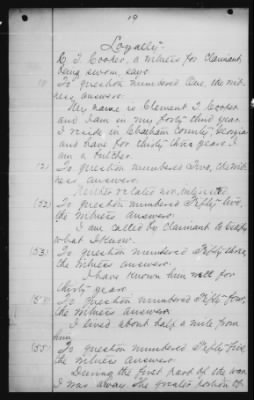 19
Loyalty
C. T. Cooper, a witness for Claimant,
being sworn, says:
To question numbered One, the wit-
ness answers.
My name is Clement T. Cooper
and I am in my forty third year.
I reside in Chatham County, Georgia
and have for thirty three years. I
am a butcher.
(2) To question numbered Two, the wit-
ness answers.
Neither related nor interested.
(52) To question numbered Fifty two,
the witness answers:
I am called by claimant to testify
what I know.
(53) To question numbered Fifty three,
the witness answers.
I have known him well for
thirty years.
To question numbered Fifty four,
the witness answers
I lived about half a mile from
him.
(55) To question numbered Fifty five
the witness answers.
During the first part of the war
I was away the greater portion of